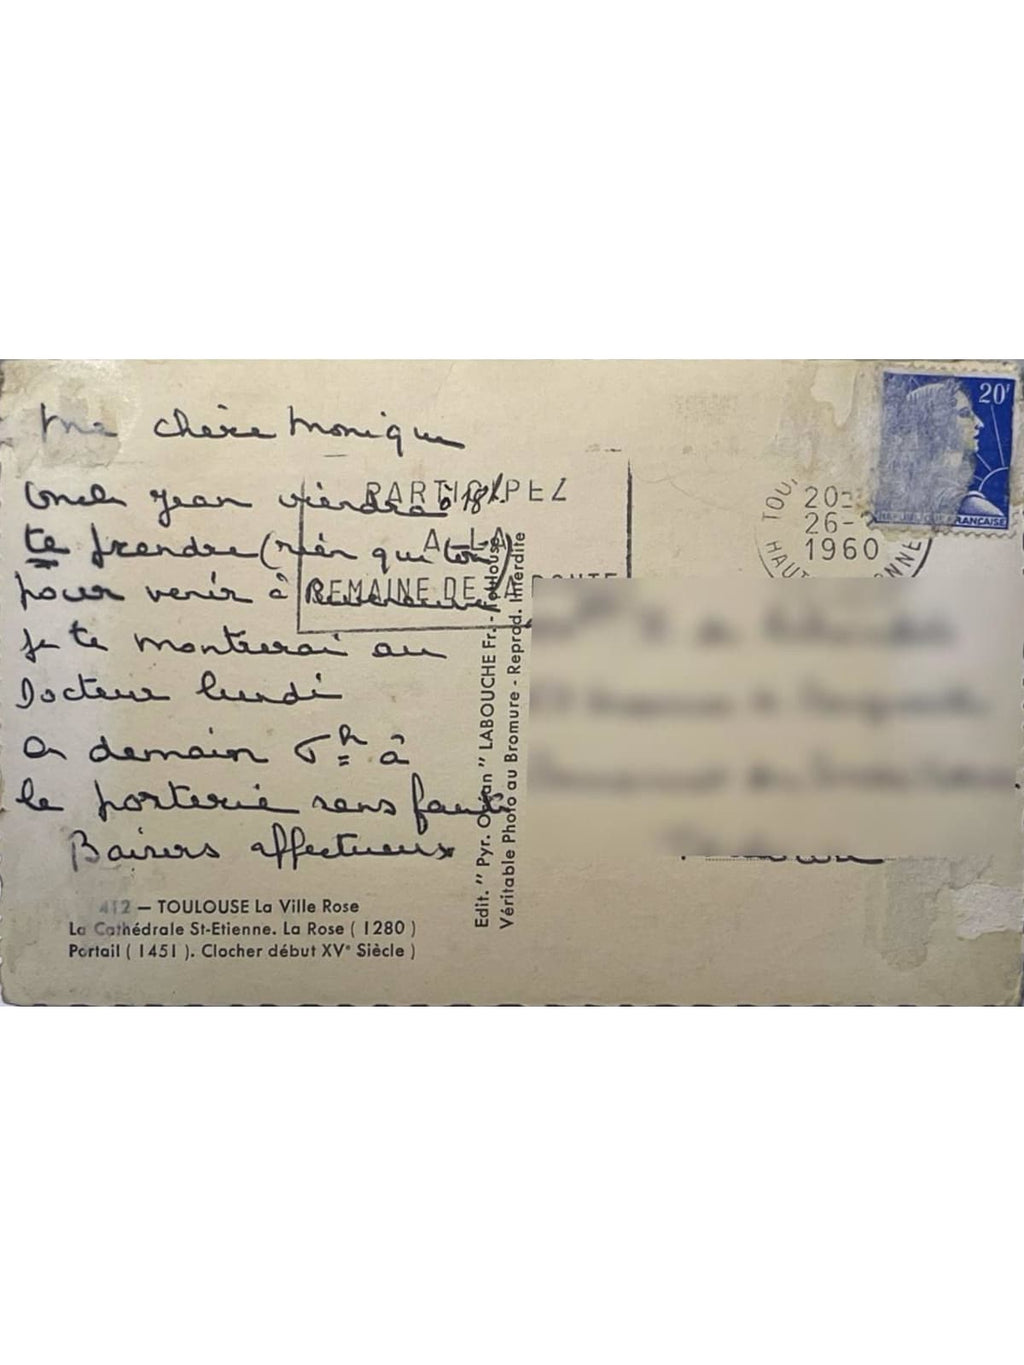 Ma chère Monique
Oncle Jean viendra à 18h.
te prendre (rien que toi)
pour venir à
je te montrerai au
Docteur lundi
A demain 6h à
la porterie sans faute
Baisers affectueux
412 — TOULOUSE La Ville Rose
La Cathédrale St-Etienne. La Rose ( 1280 )
Portail ( 1451 ). Clocher début XVe Siècle )
Edit. " Pyr. Océan " LABOUCHE Fr. - Toulouse
Véritable Photo au Bromure - Reprod. Interdite
PARTICIPEZ
A LA
SEMAINE DE LA ROUTE
TOU
20
26-
1960
HAUT ONNE
20f
FRANÇAISE